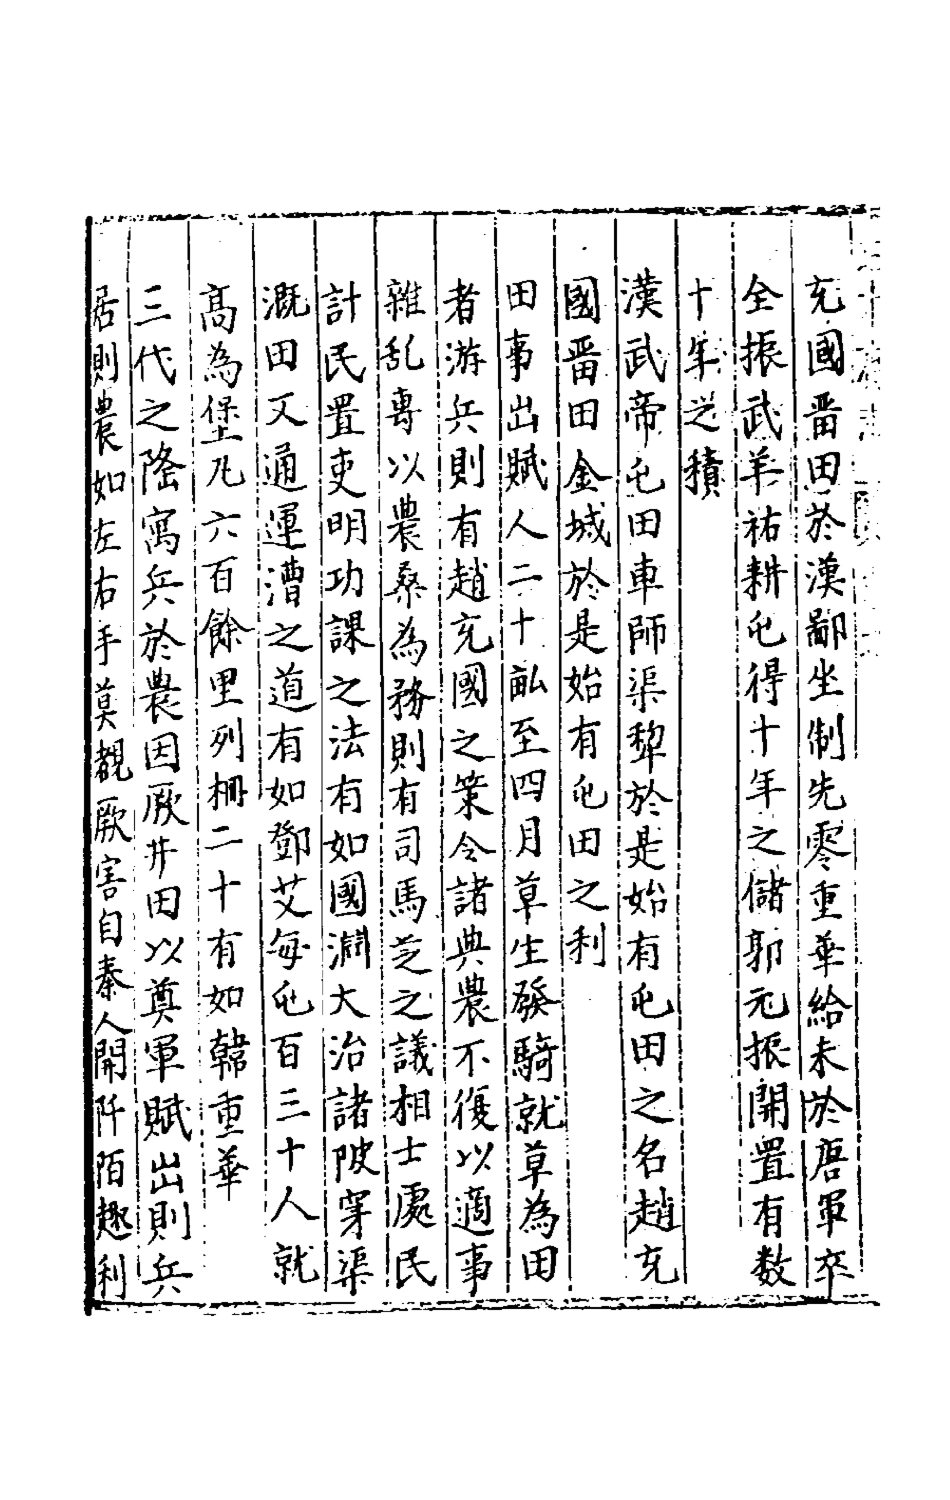 充國畨田於漢鄙坐制先零重華給未於唐軍卒
全振武羊祐耕屯得十年之儲郭元振開置有数
十年之積
漢武帝屯田車師渠犂於是始有屯田之名趙充
國畨田金城於是始有屯田之利
田事出賦人二十畆至四月草生發騎就草為田
者游兵則有趙充國之策令諸典農不復以適事
雜乱專以農桑為務則有司馬芝之議相士處民
計民置吏明功課之法有如國淵大治諸陂穿渠
溉田又通運漕之道有如鄧艾每屯百三十人就
高為堡凡六百餘里列柵二十有如韓重華
三代之隆寓兵於農因厥井田以奠軍賦出則兵
居則農如左右手莫覩厥害自秦人開阡陌趣利